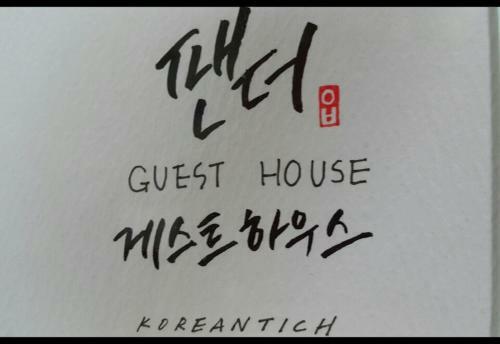 팬더
GUEST HOUSE
게스트하우스
KOREANTICH